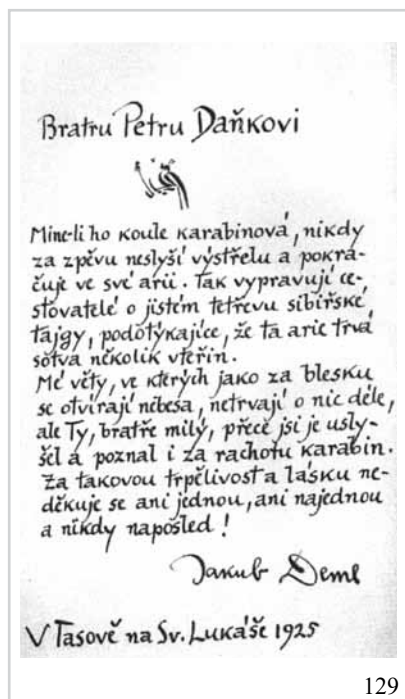 Bratru Petru Daňkovi
Mine-li ho koule karabinová, nikdy
za zpěvu neslyší výstřelu a pokra-
čuje ve své arii. Tak vypravují ce-
stovatelé o jistém tetřevu sibiřské
tajgy, podotýkajíce, že ta arie trvá
sotva několik vteřin.
Mé věty, ve kterých jako za blesku
se otvírají nebesa, netrvají o nic déle,
ale Ty, bratře milý, přece jsi je usly-
šel a poznal i za rachotu karabin.
Za takovou trpělivost a lásku ne-
děkuje se ani jednou, ani najednou
a nikdy naposled!
Jakub Deml
V Tasově na Sv. Lukáše 1925
129